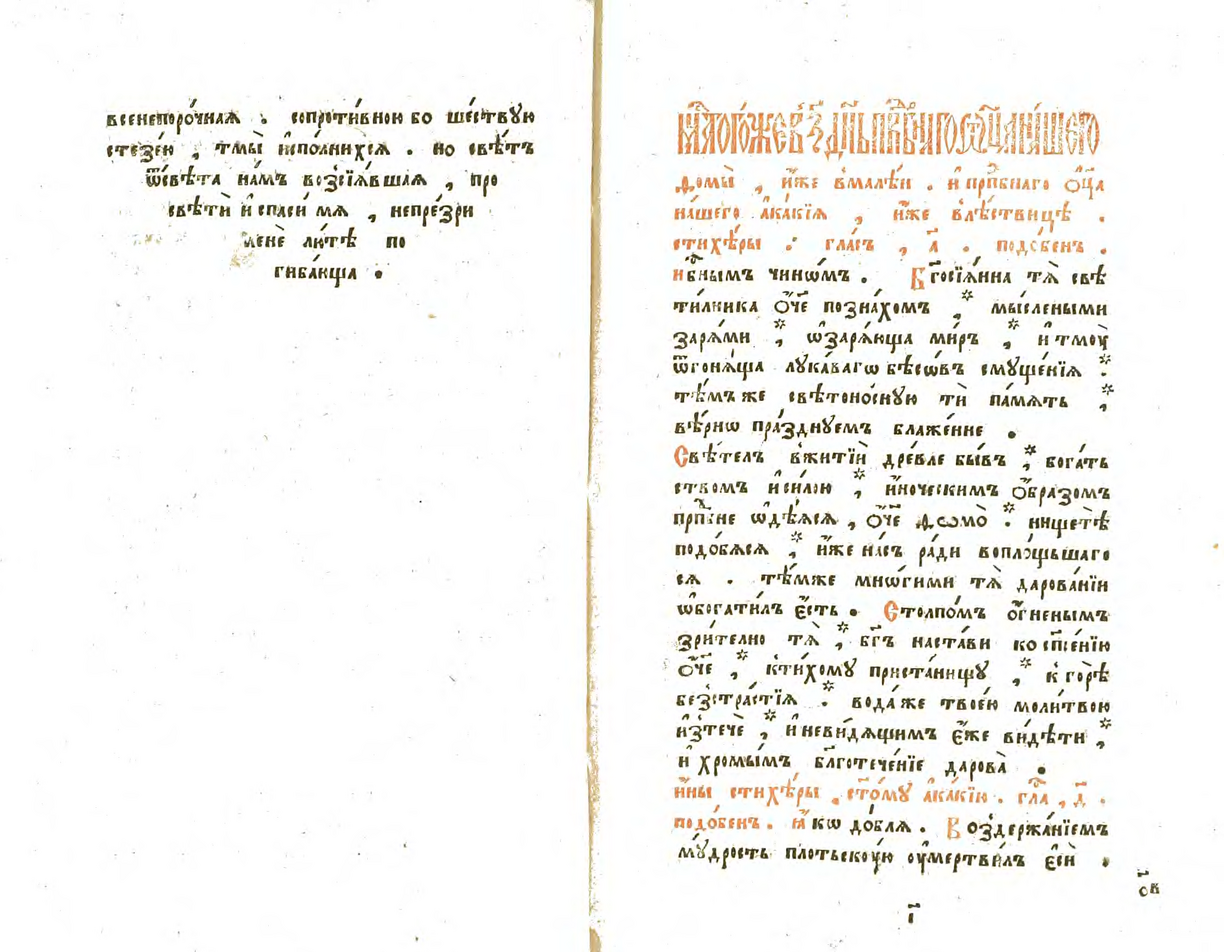 всенепоро́чнаѧ . сопроти́вною бо ше́ствꙋю
стезе́ю , тмы̀ и҆спо́лнихсѧ . но свѣ́тъ
ѿсвѣ́та на́мъ возсїѧ́вшаѧ , про
свѣтѝ и҆ спаси́ мѧ , непре́зри
менѐ лю́тѣ по
гиба́юща .
мⷭ҇ца тогѡ́же в з҃ дн҃ь прпⷣбнаго ѻ҆ц҃а на́шего
домы̀ , и҆́же вма́лѣи . и҆ прпⷣбнаго ѻ҆ц҃а
на́шего а҆ка́кїѧ , и҆́же влѣ́ствицѣ .
стихѣ́ры . гла́съ , а҃ . подо́бенъ .
нбⷭ҇нымъ чино́мъ . Бг҃осїѧ́нна тѧ̀ свѣ
ти́лника ѻ҆́ч҃е позна́хомъ , мы́слеными
зарѧ́ми , ѡ҆зарѧ́юща ми́ръ , и҆ тмоꙋ̀
ѿгонѧ́ща лꙋка́вагѡ бѣсѡ́въ смꙋще́нїѧ .
тѣ́мъ же свѣтоно́снꙋю тѝ па́мѧть ,
вѣ́рнѡ пра́зднꙋемъ блаже́нне .
Свѣ́телъ вжитїѝ дре́вле бы́въ , бога́тъ
ствомъ и҆ си́лою , и҆́ноческимъ ѻ҆́бразомъ
прпⷣбне ѡ҆дѣ́ѧсѧ , ѻ҆́ч҃е до́мо̀ . нищетѣ̀
подо́бѧсѧ , и҆́же на́съ ра́ди вопло́щьшаго
сѧ . тѣ́мже мно́гими тѧ̀ дарова́нїи
ѡ҆богати́лъ є҆́сть . Столпо́мъ ѻ҆́гненымъ
зри́телно тѧ̀ , бг҃ъ наста́ви ко сп҃се́нїю
ѻ҆́ч҃е , кти́хомꙋ приста́нищꙋ , к горѣ̀
безстра́стїѧ . вода́же твое́ю моли́твою
и҆зтечѐ , и҆неви́дѧщимъ є҆́же ви́дѣти ,
и҆ хромы́мъ бл҃готече́нїе дарова̀ .
и҆́ны стихѣ́ры , ст҃о́мꙋ а҆ка́кїю . гла́ , д҃ .
подо́бенъ . ꙗ҆́кѡ до́блѧ . Воздержа́нїемъ
мꙋ́дрость пло́тьскоую оу҆мертви́лъ є҆сѝ .
ов
і҃